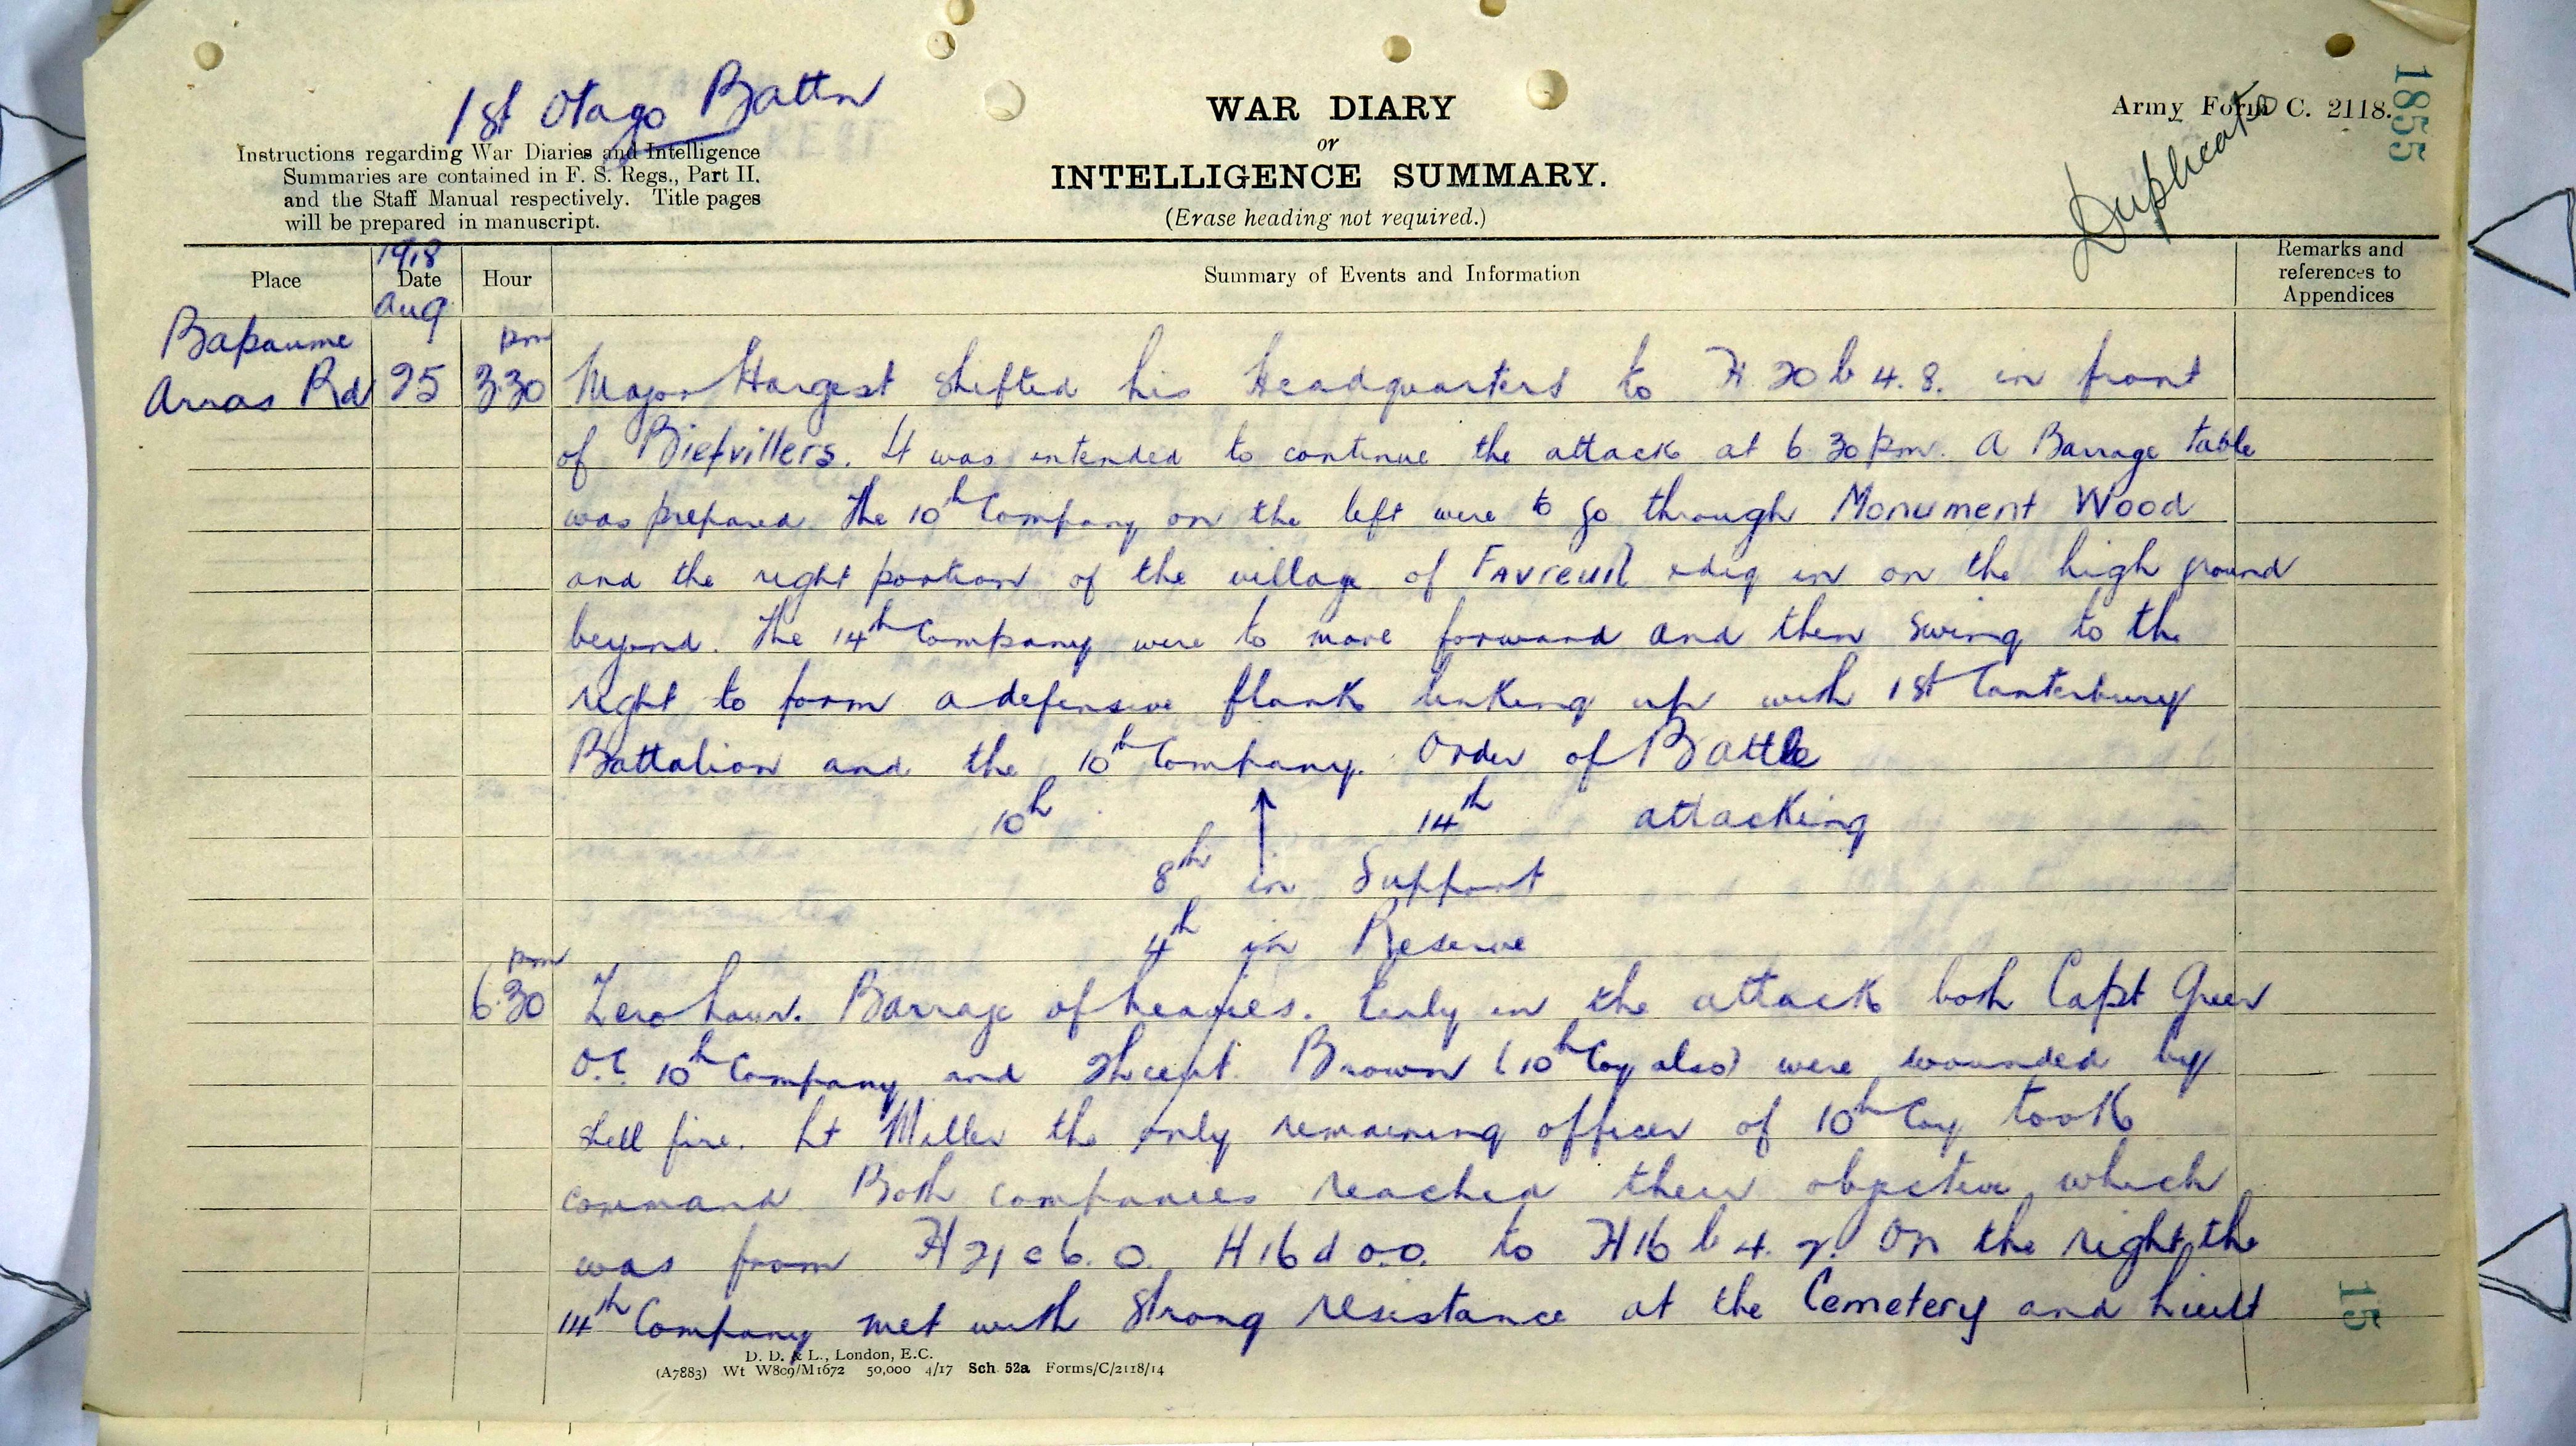 1st Otago Battn
WAR DIARY
or
INTELLIGENCE SUMMARY.
(Erase heading not required.)
Army Form C. 2118.
Duplicate
1855
Instructions regarding War Diaries and Intelligence
Summaries are contained in F. S. Regs., Part II.
and the Staff Manual respectively. Title pages
will be prepared in manuscript.
Place
1918
Date
Aug
Hour
Summary of Events and Information
Remarks and
references to
Appendices
Bapaume
Arras Rd 25 3.30 pm Major Hargest shifted his Headquarters to H 20 b 4.8. in front
of Biefvillers. It was intended to continue the attack at 6.30 pm. A Barrage table
was prepared. The 10th Company on the left were to go through Monument Wood
and the right portion of the village of Favreuil & dig in on the high ground
beyond. The 14th Company were to move forward and then swing to the
right to form a defensive flank linking up with 1st Canterbury
Battalion and the 10th Company. Order of Battle
10th ↑ 14th attacking
8th in Support
4th in Reserve
6.30 pm Zero hour. Barrage of heavies. Early in the attack both Capt Green
O.C. 10th Company and 2Lieut. Brown (10th Coy also) were wounded by
shell fire. Lt Miller the only remaining officer of 10th Coy took
command. Both companies reached their objective which
was from H 21 c 6.0. H 16 d 0.0. to H 16 b 4. On the right the
14th Company met with strong resistance at the Cemetery and
15
D. D. & L., London, E.C.
(A7883) Wt W809/M1672 50,000 4/17 Sch. 52a Forms/C/2118/14